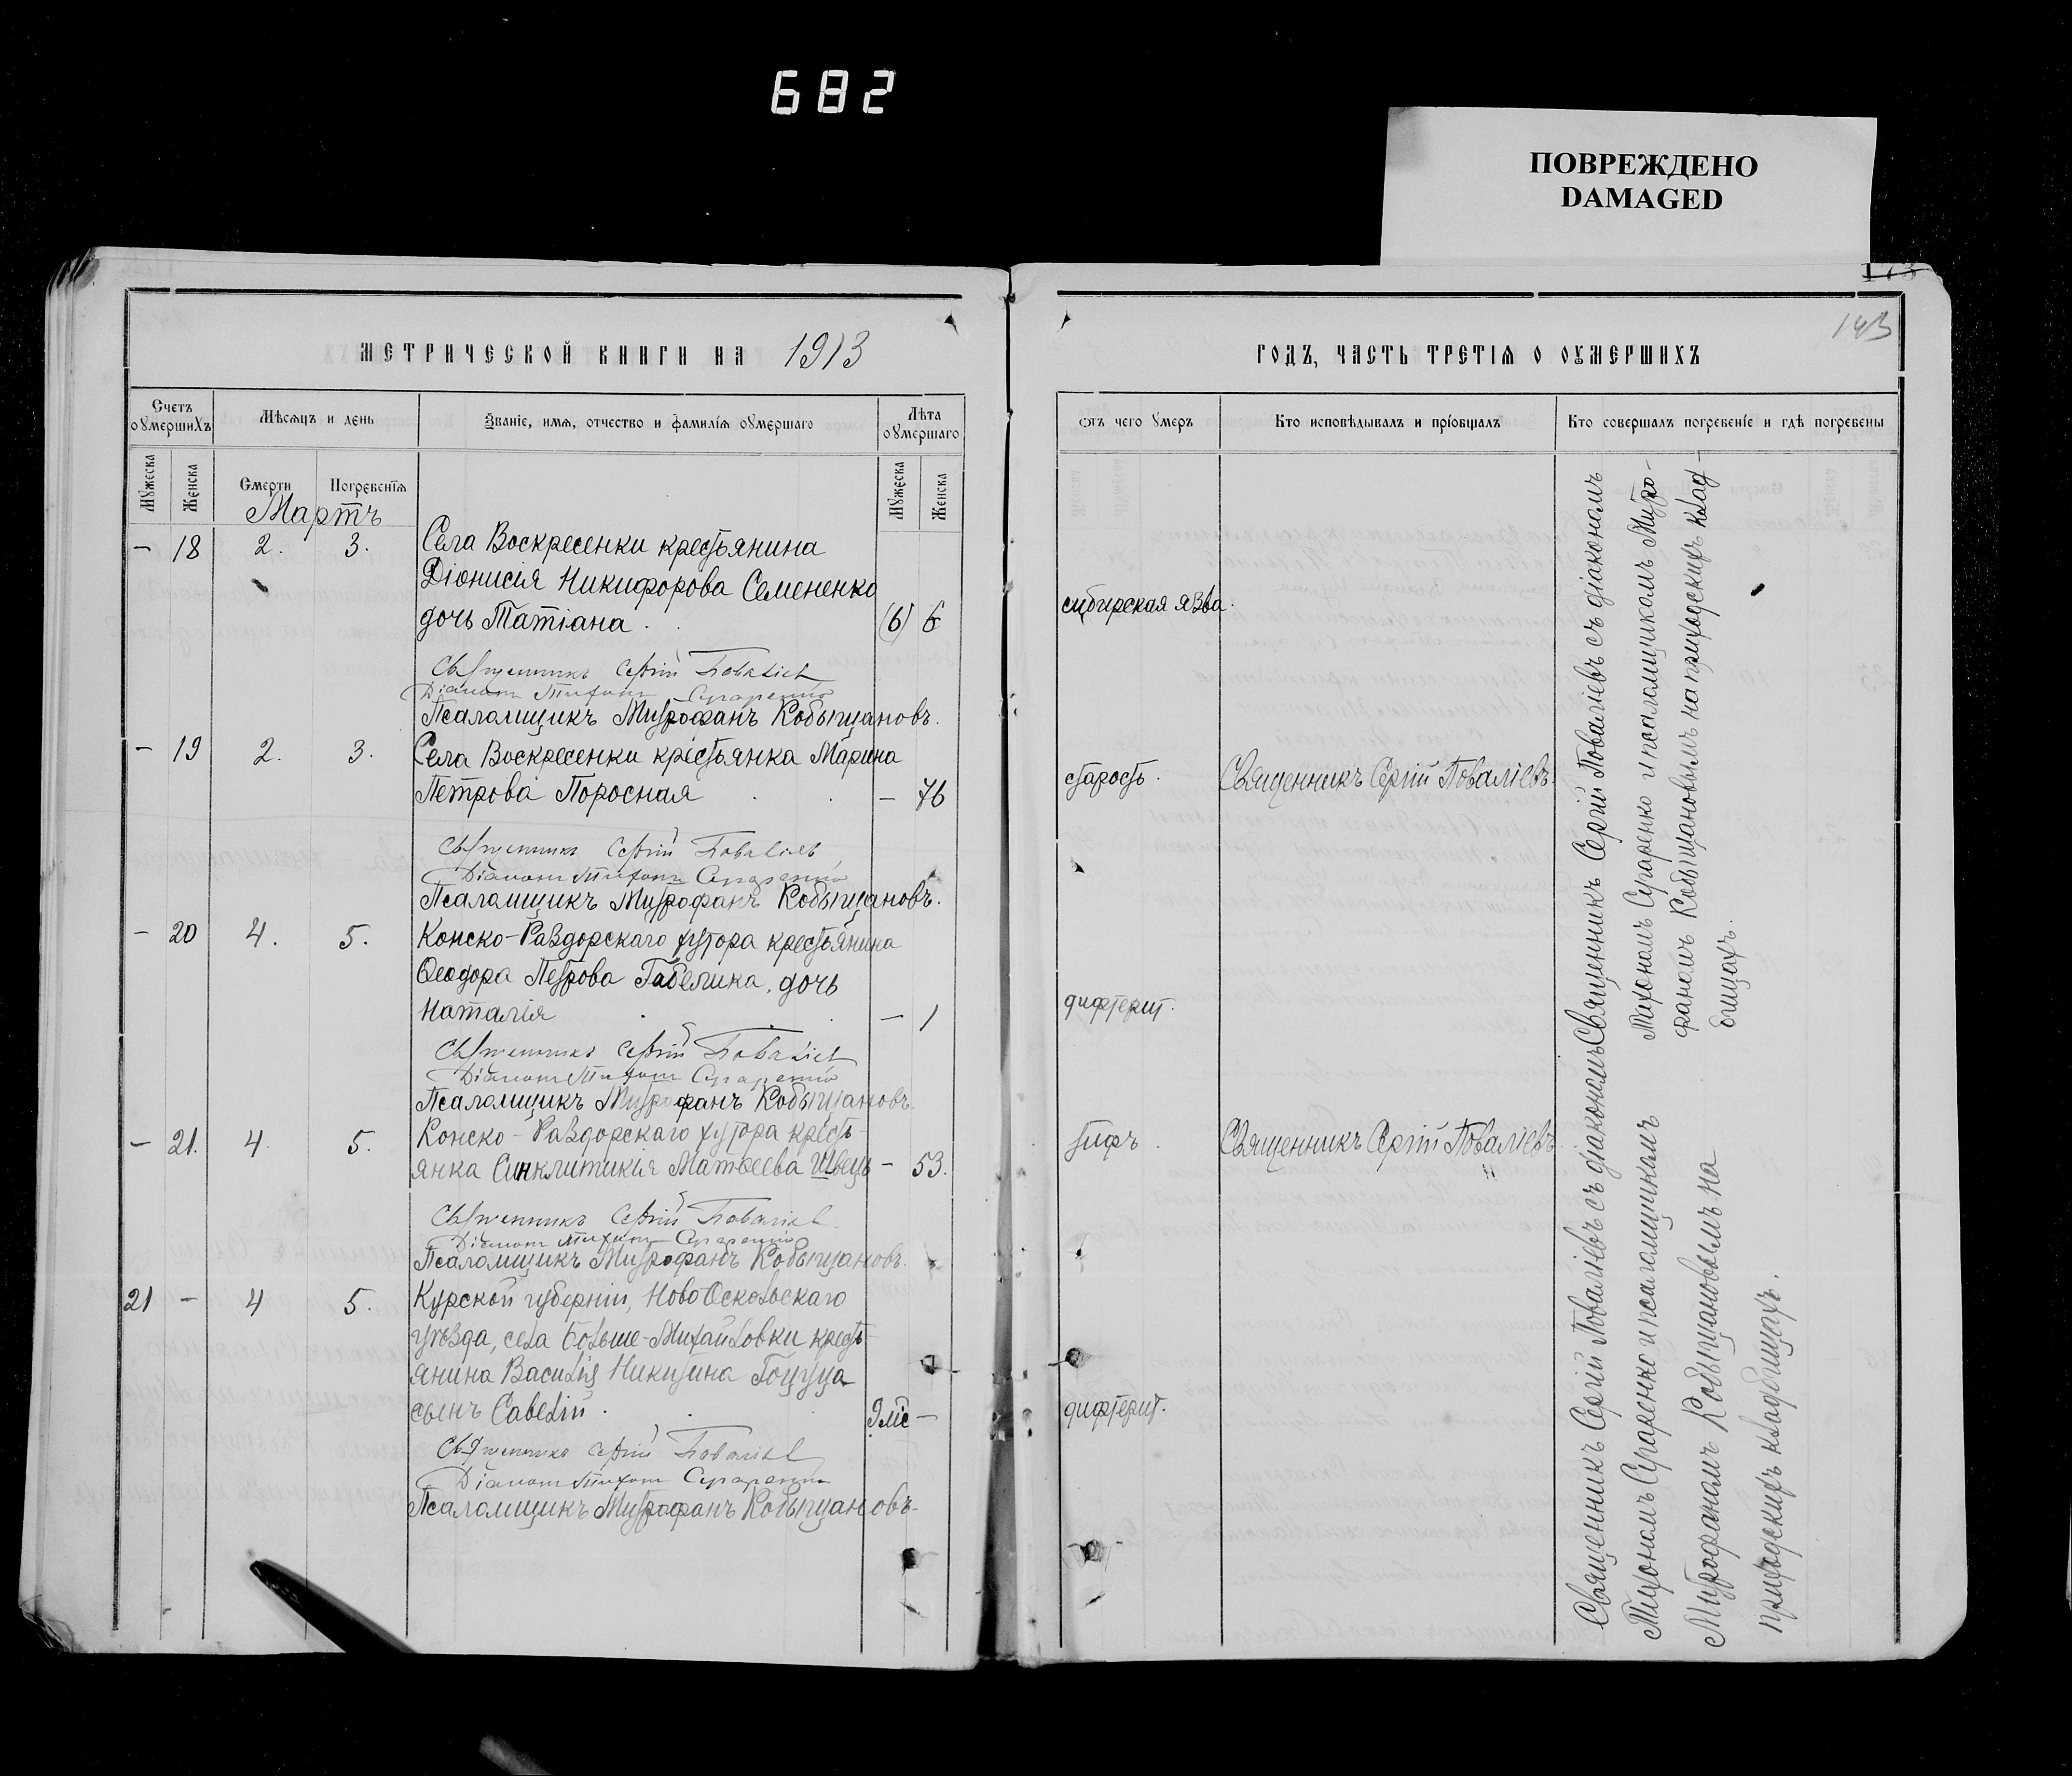 682
ПОВРЕЖДЕНО
DAMAGED
173
143
МЕТРИЧЕСКОЙ КНИГИ НА 1913
Счетъ оумершихъ
Мѣсяцъ и день
Званіе, имя, отчество и фамилія оумершаго
Лѣта оумершаго
Мужеска
Женска
Смерти
Погребенія
Мужеска
Женска
Мартъ
– 18 2. 3. Села Воскресенки крестьянина
Діонисія Никифорова Семененко
дочь Татіана . . (6) 6
Священникъ Сергій Поваліевъ
Діаконъ Тихонъ Сухаренко
Псаломщикъ Митрофанъ Кобыщановъ.
– 19 2. 3. Села Воскресенки крестьянка Марина
Петрова Поросная . . – 76
Священникъ Сергій Поваліевъ
Діаконъ Тихонъ Сухаренко
Псаломщикъ Митрофанъ Кобыщановъ.
– 20 4. 5. Конско-Раздорскаго хутора крестьянина
Ѳеодора Петрова Габелика, дочь
Наталія . . . – 1
Священникъ Сергій Поваліевъ
Діаконъ Тихонъ Сухаренко
Псаломщикъ Митрофанъ Кобыщановъ.
– 21. 4. 5. Конско-Раздорскаго хутора кресть-
янка Синклитикія Матѳеева Швецъ – 53.
Священникъ Сергій Поваліевъ
Діаконъ Тихонъ Сухаренко
Псаломщикъ Митрофанъ Кобыщановъ.
21 – 4 5. Курской губерніи, НовоОскольскаго
уѣзда, села Больше-Михайловки кресть-
янина Василія Никитина Гоцуца
сынъ Савелій . . . 9 мѣс –
Священникъ Сергій Поваліевъ
Діаконъ Тихонъ Сухаренко
Псаломщикъ Митрофанъ Кобыщановъ.
ГОДЪ, ЧАСТЬ ТРЕТІЯ О ОУМЕРШИХЪ
отъ чего умеръ
Кто исповѣдывалъ и пріобщалъ
Кто совершалъ погребеніе и гдѣ погребены
сибирская язва.
старость. Священникъ Сергій Поваліевъ
дифтерит.
тифъ. Священникъ Сергій Поваліевъ
дифтерит.
Священникъ Сергій Поваліевъ съ діакономъ
Тихономъ Сухаренко и псаломщикомъ Митро-
фаномъ Кобыщановымъ на приходскихъ клад-
бищахъ.
Священникъ Сергій Поваліевъ съ діакономъ
Тихономъ Сухаренко и псаломщикомъ
Митрофаномъ Кобыщановымъ на
приходскихъ кладбищахъ.